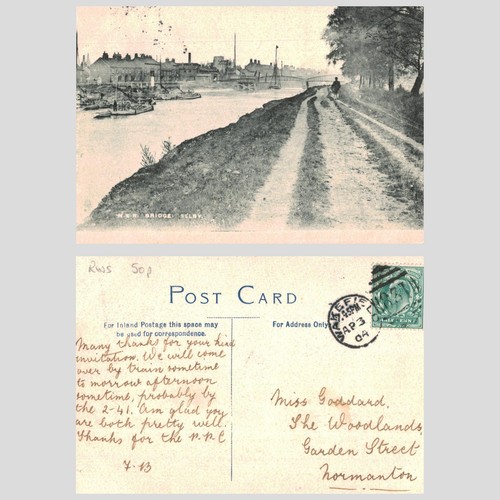 BRIDGE SELBY
RWS 50p
POST CARD
For Inland Postage this space may
be used for correspondence.
For Address Only
WAKEFIELD
AP 3
04
Many thanks for your kind
invitation. We will come
over by train sometime
to morrow afternoon
sometime, probably by
the 2-41. Am glad you
are both pretty well.
Thanks for the P.P.C
Miss Goddard,
The Woodlands,
Garden Street
Normanton